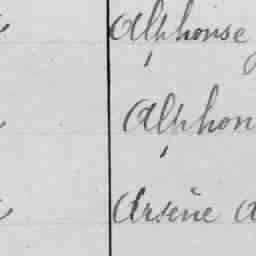 Alphonse
Alphon
Arsène